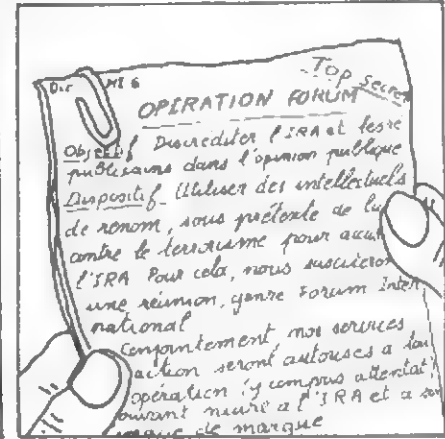 Top Secret
Dir MI 6
OPERATION FORUM
Objectif Discréditer l'IRA et les ré
publicains dans l'opinion publique
Dispositif_ Utiliser des intellectuels
de renom, sous prétexte de lu
contre le terrorisme pour accu
l'IRA Pour cela, nous susciteron
une réunion, genre Forum Inter
national
Conjointement nos services
action seront autorisés à tou
opération (y compris attentat)
pouvant nuire à l'IRA et à s
de marque